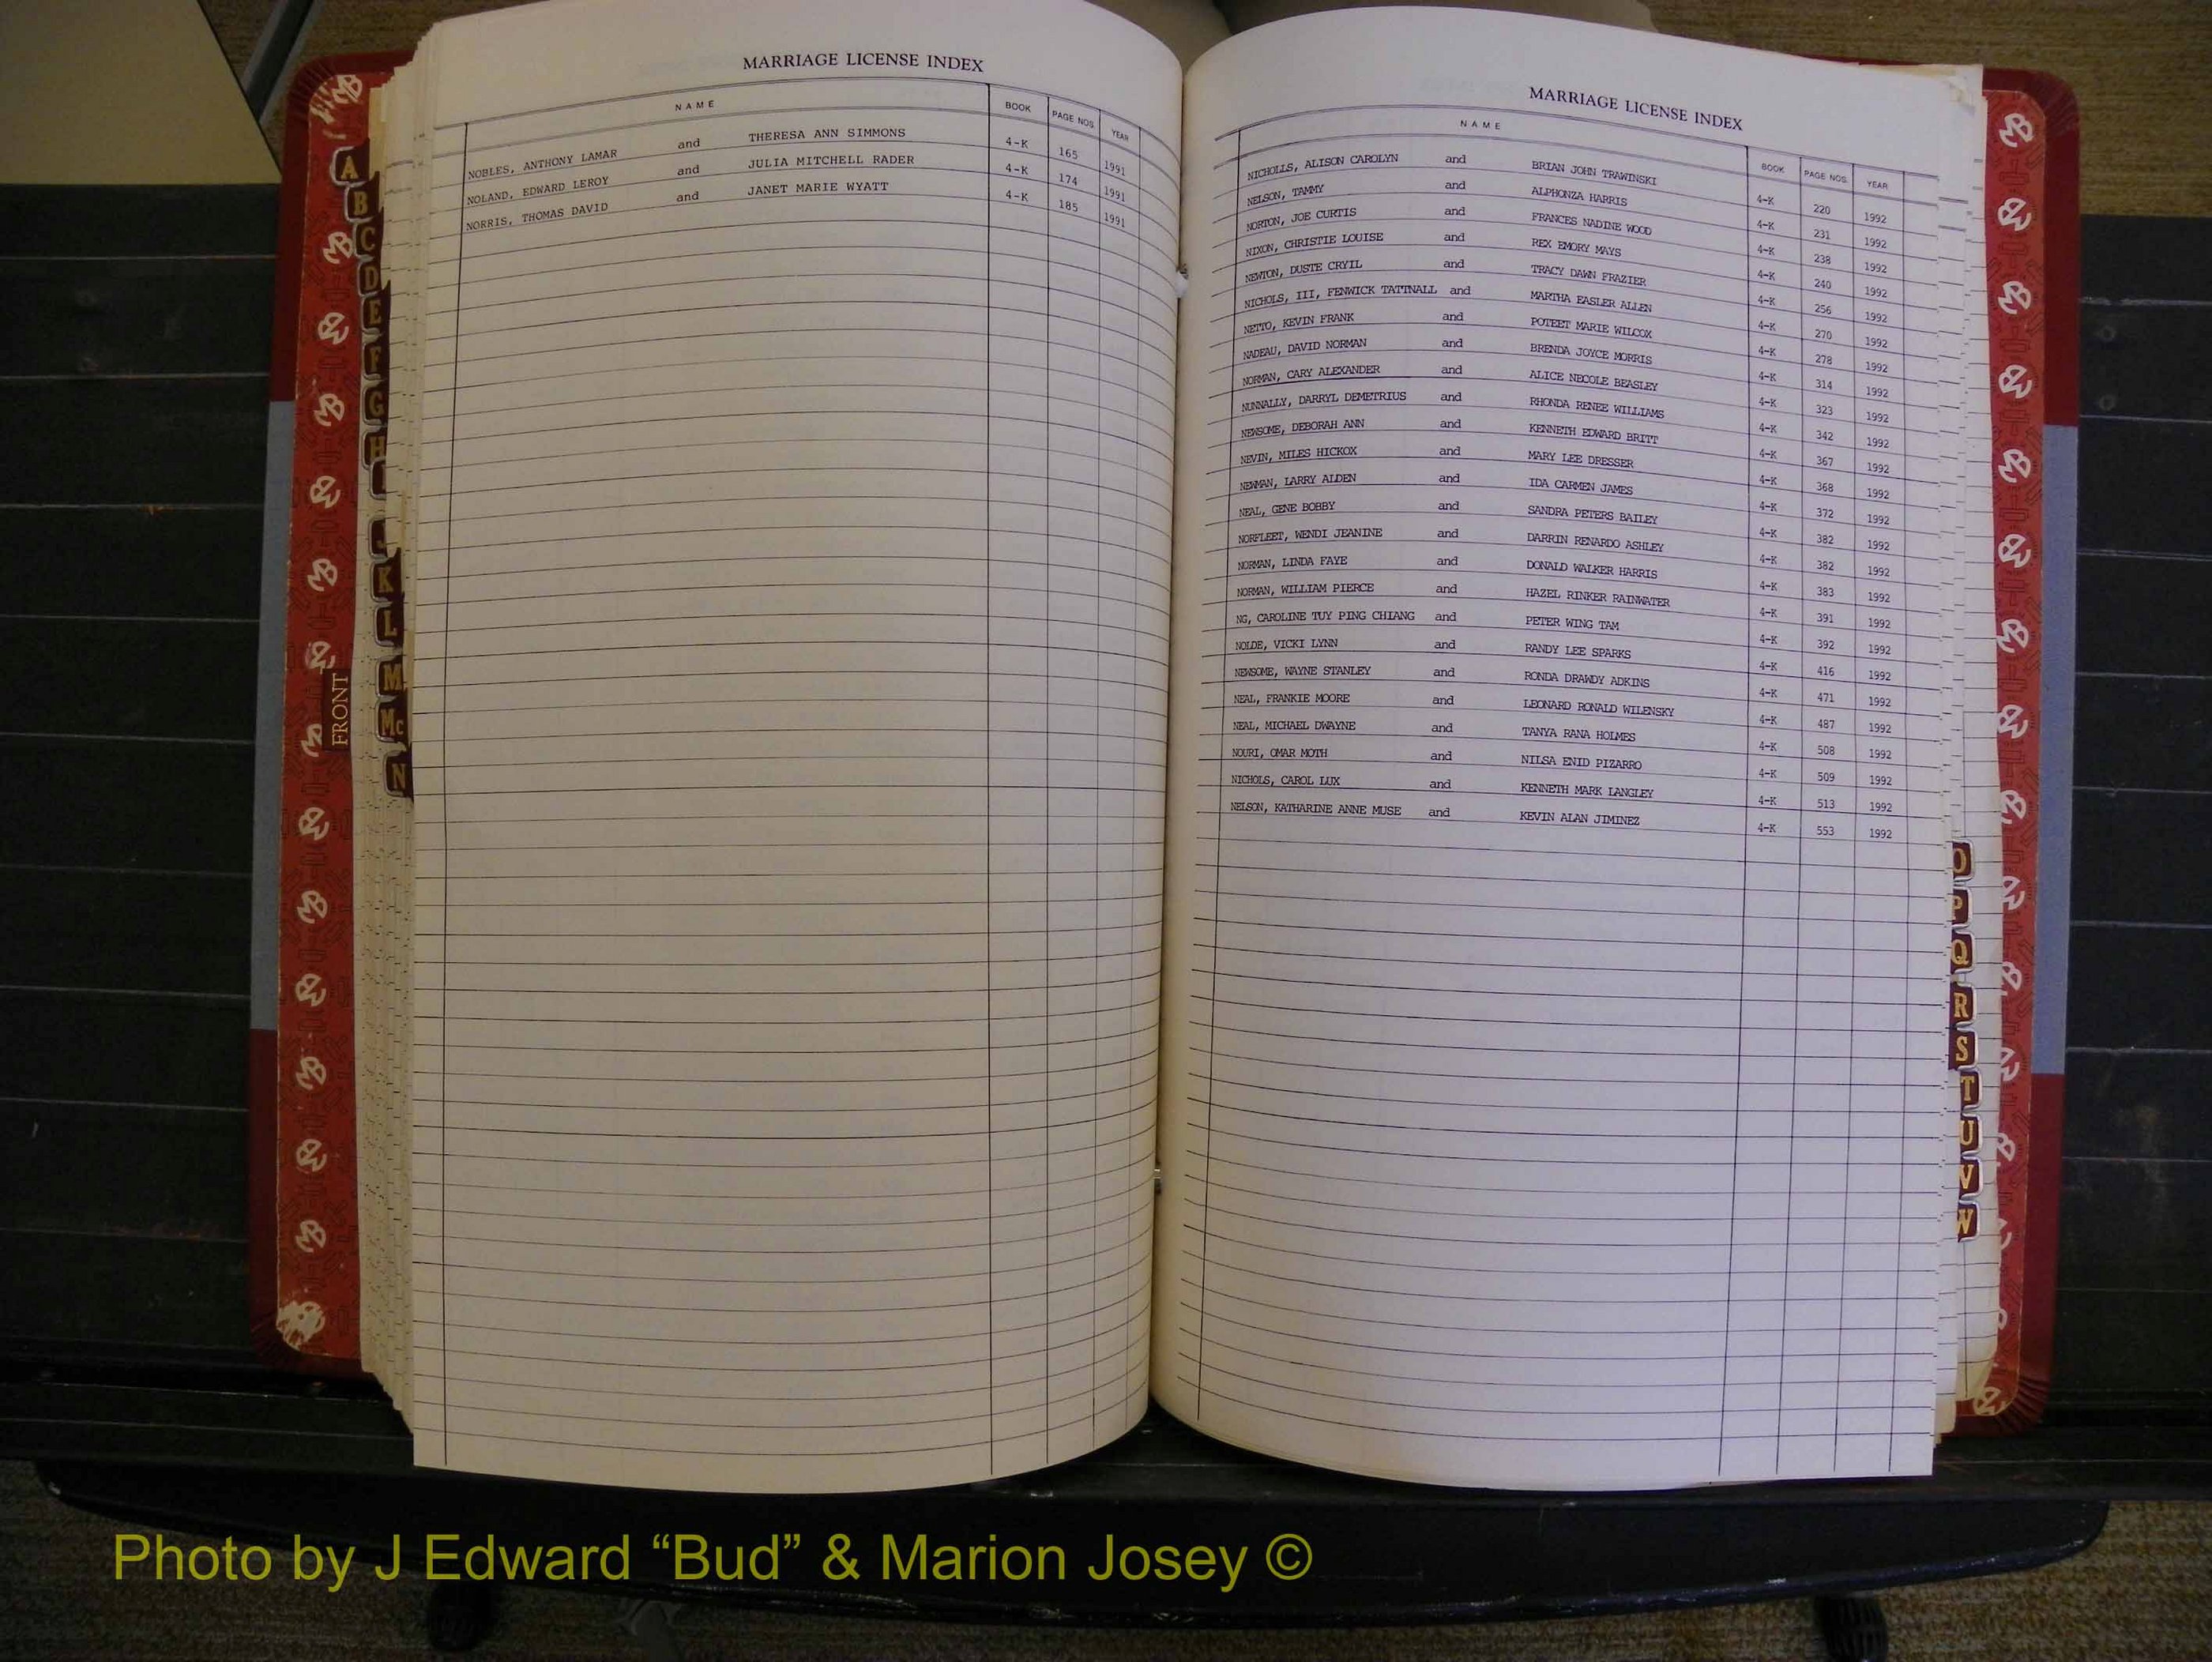 MARRIAGE LICENSE INDEX
NAME BOOK PAGE NOS. YEAR
NOBLES, ANTHONY LAMAR and THERESA ANN SIMMONS 4-K 165 1991
NOLAND, EDWARD LEROY and JULIA MITCHELL RADER 4-K 174 1991
NORRIS, THOMAS DAVID and JANET MARIE WYATT 4-K 185 1991
MARRIAGE LICENSE INDEX
NAME BOOK PAGE NOS. YEAR
NICHOLLS, ALISON CAROLYN and BRIAN JOHN TRAWINSKI 4-K 220 1992
NELSON, TAMMY and ALPHONZA HARRIS 4-K 231 1992
NORTON, JOE CURTIS and FRANCES NADINE WOOD 4-K 238 1992
NIXON, CHRISTIE LOUISE and REX EMORY MAYS 4-K 240 1992
NEWTON, DUSTE CRYIL and TRACY DAWN FRAZIER 4-K 256 1992
NICHOLS, III, FENWICK TATTNALL and MARTHA EASLER ALLEN 4-K 270 1992
NETTO, KEVIN FRANK and POTEET MARIE WILCOX 4-K 278 1992
NADEAU, DAVID NORMAN and BRENDA JOYCE MORRIS 4-K 314 1992
NORMAN, CARY ALEXANDER and ALICE NECOLE BEASLEY 4-K 323 1992
NUNNALLY, DARRYL DEMETRIUS and RHONDA RENEE WILLIAMS 4-K 342 1992
NEWSOME, DEBORAH ANN and KENNETH EDWARD BRITT 4-K 367 1992
NEVIN, MILES HICKOX and MARY LEE DRESSER 4-K 368 1992
NEWMAN, LARRY ALDEN and IDA CARMEN JAMES 4-K 372 1992
NEAL, GENE BOBBY and SANDRA PETERS BAILEY 4-K 382 1992
NORFLEET, WENDI JEANINE and DARRIN RENARDO ASHLEY 4-K 382 1992
NORMAN, LINDA FAYE and DONALD WALKER HARRIS 4-K 383 1992
NORMAN, WILLIAM PIERCE and HAZEL RINKER RAINWATER 4-K 391 1992
NG, CAROLINE TUY PING CHIANG and PETER WING TAM 4-K 392 1992
NOLDE, VICKI LYNN and RANDY LEE SPARKS 4-K 416 1992
NEWSOME, WAYNE STANLEY and RONDA DRAWDY ADKINS 4-K 471 1992
NEAL, FRANKIE MOORE and LEONARD RONALD WILENSKY 4-K 487 1992
NEAL, MICHAEL DWAYNE and TANYA RANA HOLMES 4-K 508 1992
NOURI, OMAR MOTH and NILSA ENID PIZARRO 4-K 509 1992
NICHOLS, CAROL LUX and KENNETH MARK LANGLEY 4-K 513 1992
NELSON, KATHARINE ANNE MUSE and KEVIN ALAN JIMINEZ 4-K 553 1992
A
B
C
D
E
F
G
H
J
K
L
M
Mc
N
FRONT
O
P
Q
R
S
T
U
V
W
Photo by J Edward “Bud” & Marion Josey ©